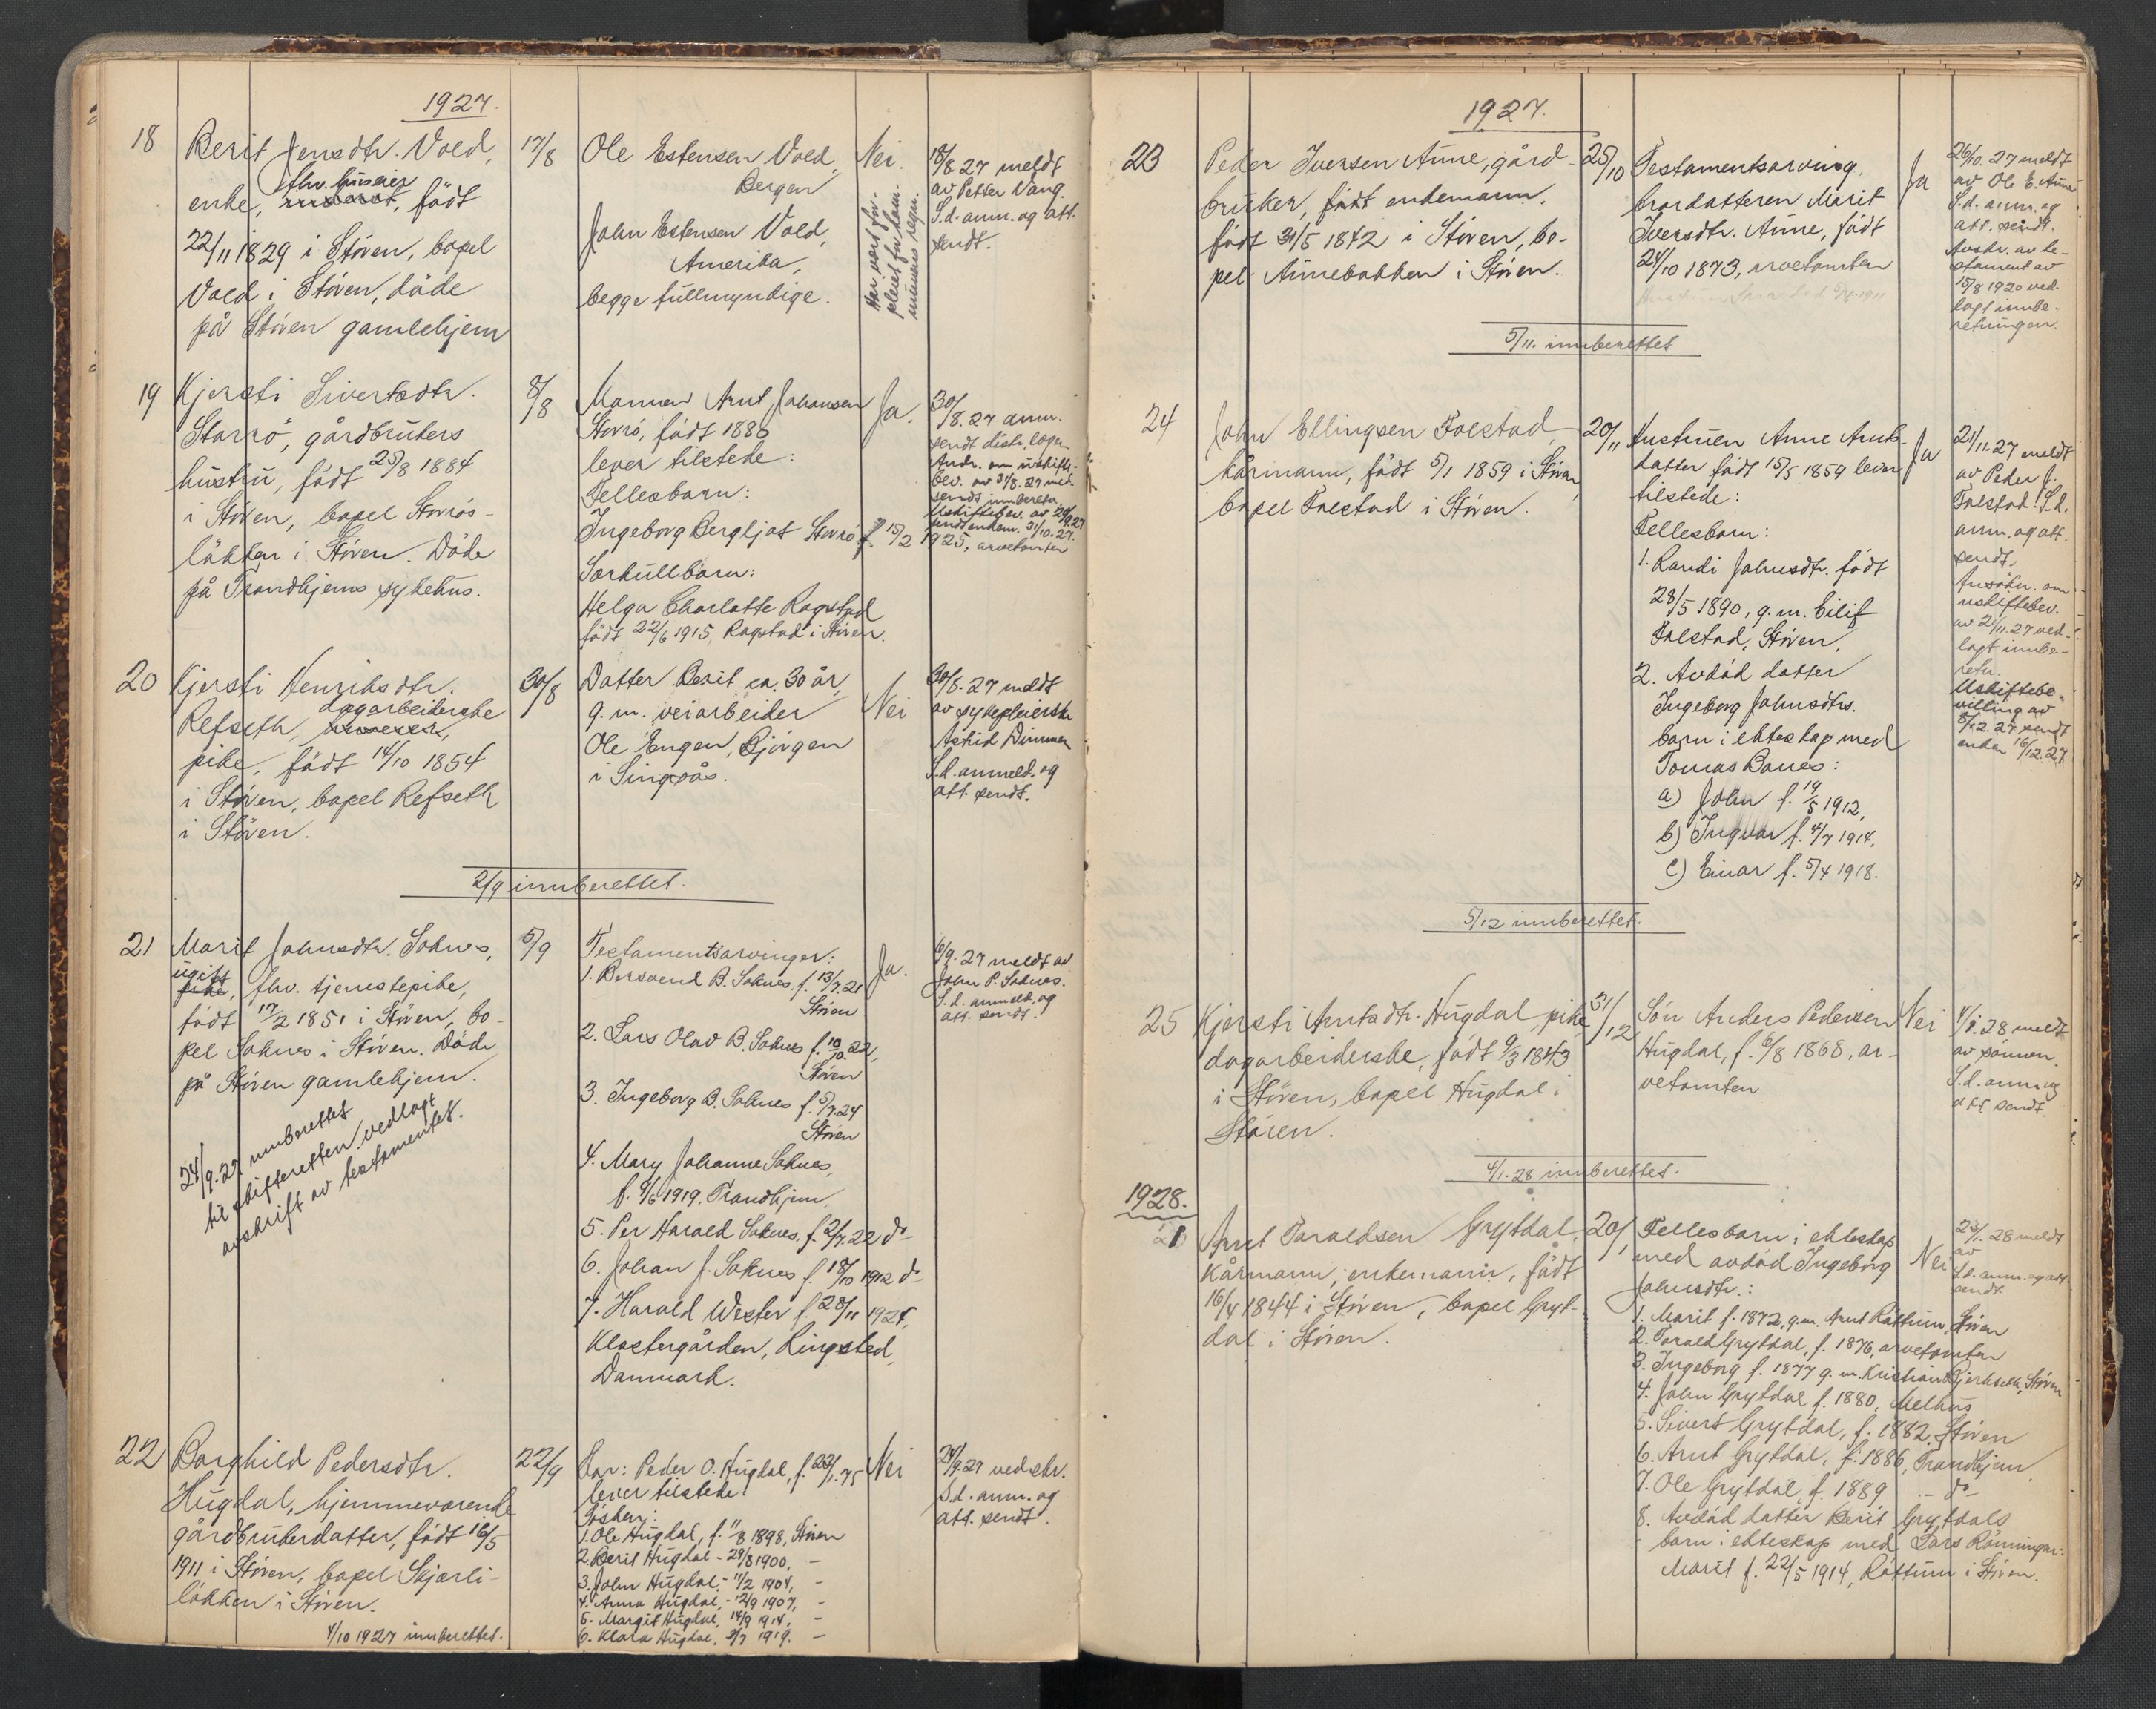 1927.
18
Berit Jensdtr. Vold,
fhv. huseier
enke, født
22/11 1829 i Støren, bopel
Vold i Støren, døde
på Støren gamlehjem
17/8
Ole Estensen Vold,
Bergen
John Estensen Vold,
Amerika,
begge fullmyndige.
Nei.
Har vært for-
pleiet for kom-
munens regn.
18/8 27 meldt
av Petter Vang.
S.d. anm. og att.
sendt.
19
Kjersti Sivertsdtr.
Storrø, gårdbrukers
hustru, født 25/8 1884
i Støren, bopel Storrøs-
løkken i Støren. Døde
på Trondhjems sykehus.
8/8
Mannen Arnt Johansen
Storrø, født 1880
lever tilstede:
Fellesbarn:
Ingeborg Bergljot Storrø f. 15/2 1925, arvetomten
Særkullbarn:
Helga Charlotte Rogstad
født 22/6 1915, Rogstad i Støren.
Ja.
30/8. 27 anm.
sendt
Andr. om uskifte-
bev. av 31/8. 27 med-
sendt innberetn.
Uskiftebev. av 24/9.27
sendt enkem. 31/10. 27.
20
Kjersti Henriksdtr.
dagarbeiderske
Refseth,
pike, født 14/10 1854
i Støren, bopel Refseth
i Støren.
30/8
Datter Berit ca. 30 år,
g. m. veiarbeider
Ole Engen, Bjørgen
i Singsås.
Nei
30/8. 27 meldt
av sykepleierske
Astrid Dimmen
S.d. anmeld. og
att. sendt.
2/9 innberettet.
21
Marit Johnsdtr. Soknes,
ugift
pike, fhv. tjenestepike,
født 17/2 1851 i Støren, bo-
pel Soknes i Støren. Døde
på Støren gamlehjem.
24/9. 27 innberettet
til skifteretten vedlagt
avskrift av testamentet.
5/9
Testamentsarvinger:
1. Borsvend B. Soknes, f. 13/7. 21
Støren
2. Lars Olav B. Soknes f. 10/10. 22,
Støren
3. Ingeborg B. Soknes f. 5/7. 24
Støren
4. Mary Johanne Soknes,
f. 9/6 1919. Trondhjem
5. Per Harald Soknes, f. 2/7. 22 do
6. Johan J. Soknes f. 18/10 1912 do
7. Harald Wester f. 28/11 1924,
Klostergården, Ringsted,
Danmark.
Ja.
6/9. 27 meldt av
John P. Soknes.
S.d. anmeld. og
att. sendt.
22
Borghild Pedersdtr.
Hugdal, hjemmeværende
gårdbrukerdatter, født 16/5
1911 i Støren, bopel Skjærli-
løkken i Støren.
4/10 1927 innberettet.
22/9
Far: Peder O. Hugdal, f. 23/1. 75
lever tilstede.
Søsken:
1. Ole Hugdal, f. 11/8 1898, Støren
2. Berit Hugdal - 29/8 1900, -
3. John Hugdal, - 11/2 1904, -
4. Anna Hugdal, - 12/9 1907, -
5. Margit Hugdal, 14/9 1914, -
6. Klara Hugdal, 3/7 1919. -
Nei
24/9. 27 ved skr.
S.d. anm. og
att. sendt.
1927.
23
Peder Iversen Aune, gård-
bruker, født enkemann,
født 31/5 1842 i Støren, bo-
pel Aunebakken i Støren.
25/10
Testamentsarving,
brordatteren Marit
Iversdtr. Aune, født
24/10 1873, arvetomten
Ja
26/10. 27 meldt
av Ole E. Aune
S.d. anm. og
att. sendt.
Avskr. av te-
stament av
15/8 1920 ved-
lagt innbe-
retningen.
5/11. innberettet
24
John Ellingsen Folstad,
kårmann, født 5/1 1859 i Støren
bopel Folstad i Støren.
20/11
Hustruen Anne Arnts-
datter født 15/5 1859 lever
tilstede:
Fellesbarn:
1. Randi Johnsdtr. født
28/5 1890, g. m. Eilif
Folstad, Støren.
2. Avdød datter
Ingeborg Johnsdtrs.
barn i ekteskap med
Tomas Bones:
a) John f. 19/5 1912,
b) Ingvar f. 4/7 1914,
c) Einar f. 5/4 1918.
Ja
21/11. 27 meldt
av Peder J.
Folstad. S.d.
anm. og att.
sendt.
Ansøkn. om
uskiftebev.
av 21/11. 27 ved-
lagt innbe-
retn.
Uskiftebe-
villing av
8/12 27 sendt
enken 16/12.27
5/12 innberettet.
25
Kjersti Arntsdtr. Hugdal, pike
dagarbeiderske, født 9/3 1843
i Støren, bopel Hugdal i
Støren.
31/12
Søn Anders Pedersen
Hugdal, f. 6/8 1868, ar-
vetomten
Nei
4/1. 28 meldt
av sønnen.
S.d. anm og
att sendt.
4/1. 28 innberettet.
1928.
1
Arnt Taraldsen Grytdal,
Kårmann, enkemann, født
16/4 1844 i Støren, bopel Gryt-
dal i Støren.
20/1
Fellesbarn i ekteskap
med avdød Ingeborg
Johnsdtr.:
1. Marit f. 1872, g.m. Arnt Røttum, Støren
2. Tarald Grytdal, f. 1876, arvetomten
3. Ingeborg f. 1877 g. m. Kristian Bjerkseth, Støren
4. John Grytdal f. 1880, Melhus
5. Sivert Grytdal, f. 1882, Støren
6. Arnt Grytdal, f. 1886, Trondhjem
7. Ole Grytdal f. 1889 - do -
8. Avdød datter Berit Grytdals
barn i ekteskap med Lars Rønningen:
Marit f. 22/5 1914, Røttum i Støren.
Nei
23/1. 28 meldt
av
S.d. anm. og att.
sendt.